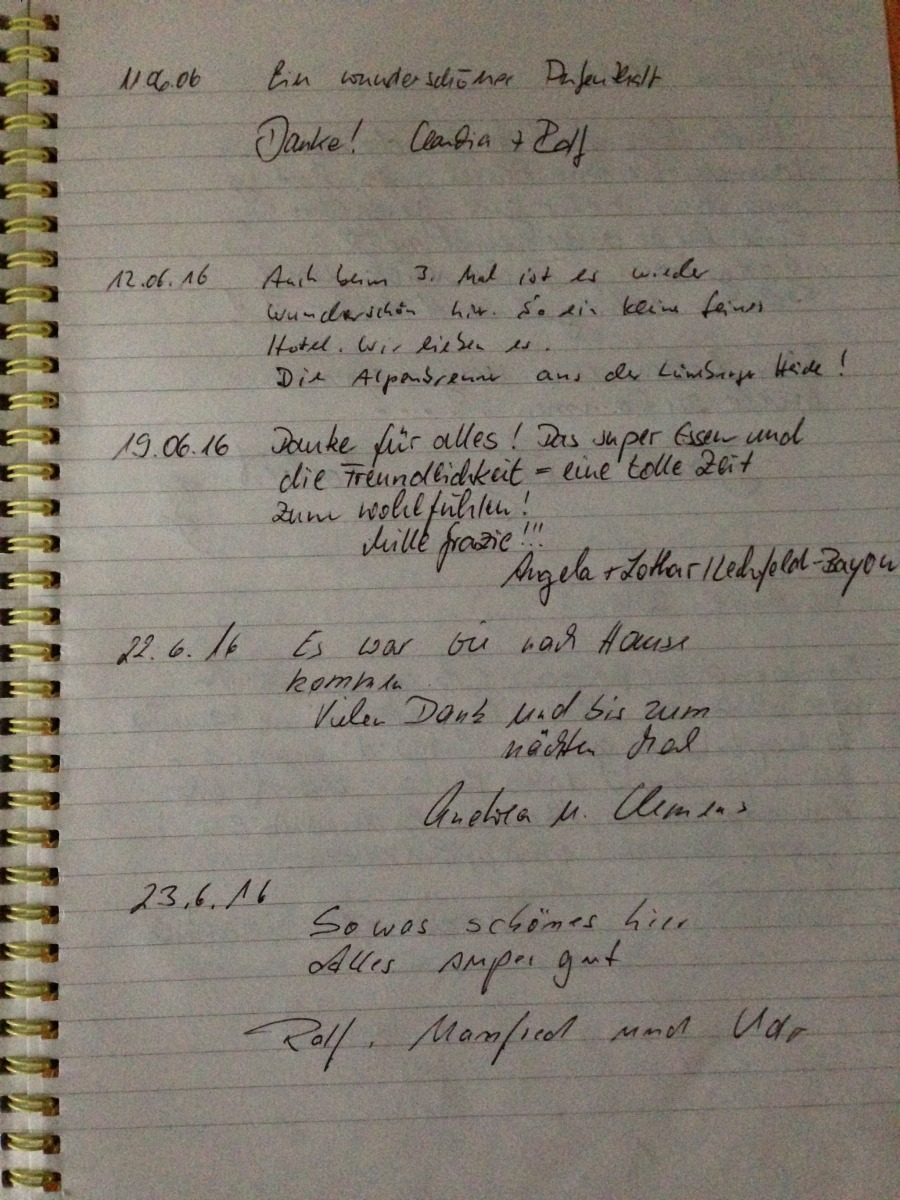 11.06.06 Ein wunderschöner Aufenthalt
Danke! Claudia + Rolf
12.06.16 Auch beim 3. Mal ist es wieder
wunderschön hier. So ein kleine feines
Hotel. Wir lieben es.
Die Alpenbrenner aus der Lüneburger Heide!
19.06.16 Danke für alles! Das super Essen und
die Freundlichkeit = eine tolle Zeit
zum wohlfühlen!
Mille grazie!!!
Angela + Lothar
22.6.16 Es war wie nach Hause
kommen
Vielen Dank und bis zum
nächsten Mal
Andrea u. Clemens
23.6.16
So was schönes hier
Alles super gut
Rolf, Manfred und Udo